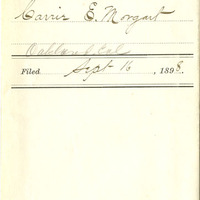 Carrie E. Morgart
Oakland, Cal
Filed Sept 16, 1898.